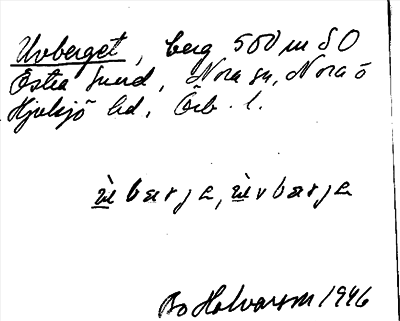 Uvberget, berg 500 m SO
Östra Sund, Nora sn, Nora o
Hjulsjö hd, Örb. l.
ùbærja, ùvbærja
Bo Halvarson 1946